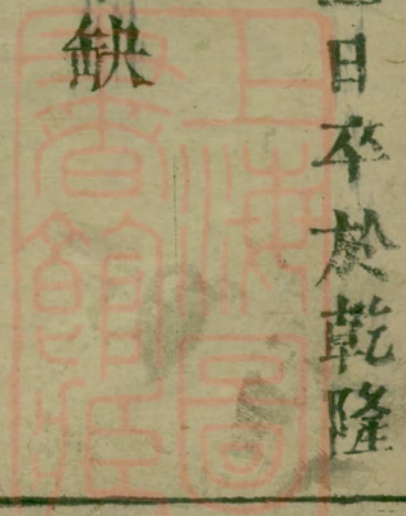 日卒於乾隆
缺
上海圖
書館藏